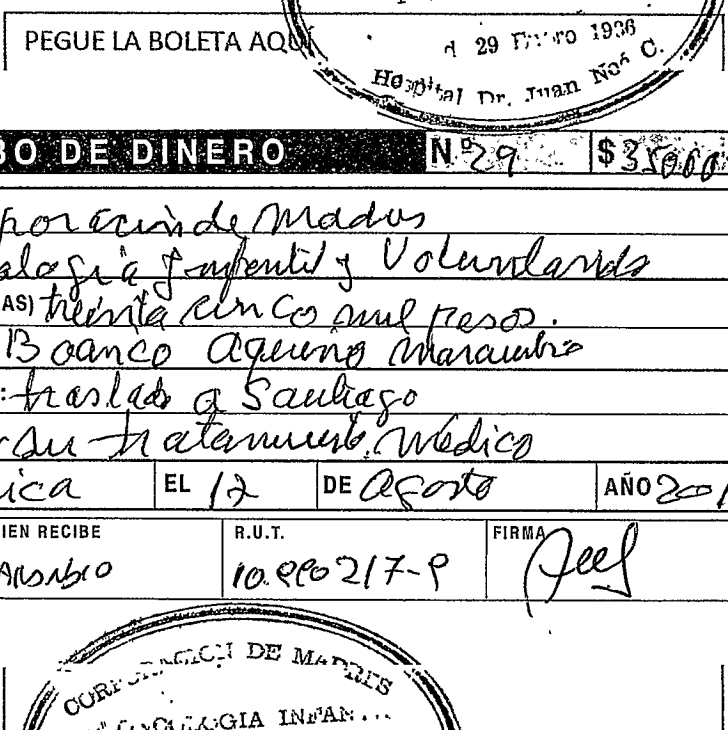 PEGUE LA BOLETA AQUÍ
29 Enero 1986
Hospital Dr. Juan Noé C.
BO DE DINERO Nº 29 $ 35000
poración de Madres
alogía Infantil y Voluntarids
AS) treinta cinco mil pesos.
Boanco Aquino Marambio
: traslado a Santiago
su tratamiento médico
ica EL 12 DE Agosto AÑO 201
IEN RECIBE R.U.T. FIRMA
CORPORACION DE MADRES
INFAN